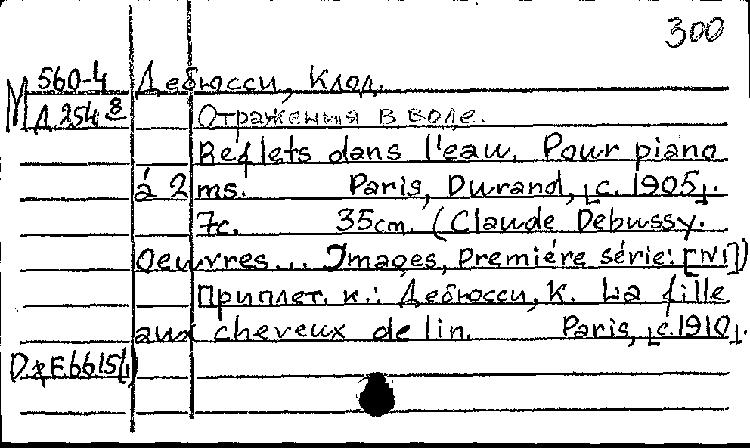 300
560-4 Дебюсси, Клод.
М Д 254 8 Отражения в воде.
Reflets dans l'eau. Pour piano
á 2 ms. Paris, Durand, [c. 1905].
7c. 35cm. (Claude Debussy.
Oeuvres... Images, premiére série: [N1])
Приплет. к.: Дебюсси, К. La fille
aux cheveux de lin. Paris, [c.1910].